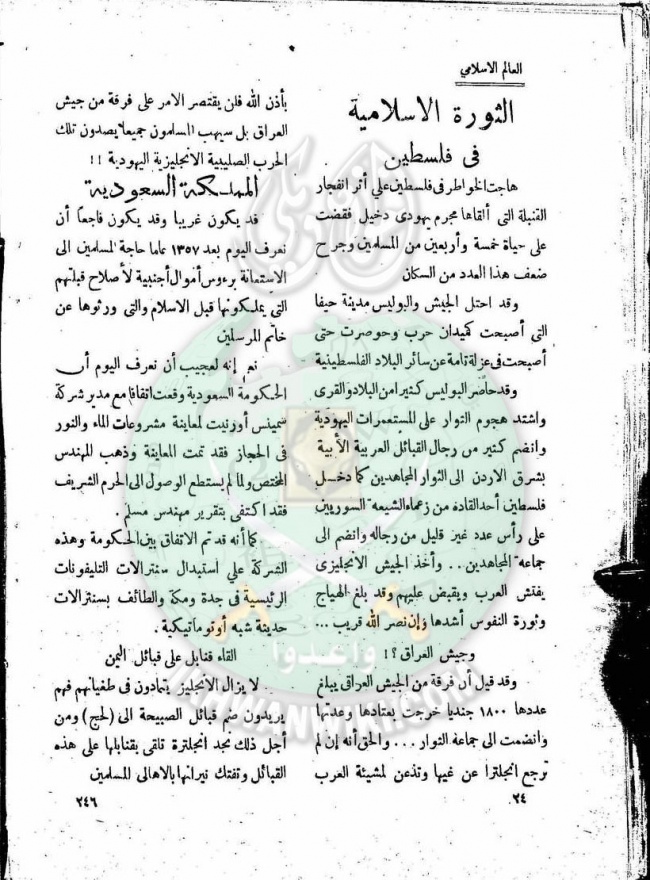 العالم الاسلامي
الثورة الاسلامية
فى فلسطين
هاجت الخواطر فى فلسطين على أثر انفجار
القنبلة التى ألقاها مجرم يهودى دخيل فقضت
على حياة خمسة وأربعين من المسلمين وجرح
ضعف هذا العدد من السكان
وقد احتل الجيش والبوليس مدينة حيفا
التى أصبحت كميدان حرب وحوصرت حتى
أصبحت فى عزلة تامة عن سائر البلاد الفلسطينية
وقد حاصر البوليس كثيرا من البلاد والقرى
واشتد هجوم الثوار على المستعمرات اليهودية
وانضم كثير من رجال القبائل العربية الأبية
بشرق الاردن الى الثوار المجاهدين كما دخل
فلسطين أحد القادة من زعماء الشيعة السوريين
على رأس عدد غير قليل من رجاله وانضم الى
جماعة المجاهدين .. وأخذ الجيش الانجليزى
يفتش العرب ويقبض عليهم وقد بلغ الهياج
وثورة النفوس أشدها وإن نصر الله قريب ...
وجيش العراق ؟!
وقد قيل أن فرقة من الجيش العراقى يبلغ
عددها ١٨٠٠ جنديا خرجت بعتادها وعدتها
وانضمت الى جماعة الثوار ... والحق أنه إن لم
ترجع انجلترا عن غيها وتذعن لمشيئة العرب
٢٤
بأذن الله فلن يقتصر الامر على فرقة من جيش
العراق بل سيهب المسلمون جميعا يصدون تلك
الحرب الصليبية الانجليزية اليهودية !!
المملكة السعودية
قد يكون غريبا وقد يكون فاجعا أن
نعرف اليوم بعد ١٣٥٧ عاما حاجة المسلمين الى
الاستعانة برءوس أموال أجنبية لأصلاح قبلتهم
التى يملكونها قبل الاسلام والتى ورثوها عن
خاتم المرسلين
نعم إنه لعجيب أن نعرف اليوم أن
الحكومة السعودية وقعت اتفاقا مع مدير شركة
سيمنس أورنيت لمعاينة مشروعات الماء والنور
فى الحجاز فقد تمت المعاينة وذهب المهندس
المختص ولما لم يستطع الوصول الى الحرم الشريف
فقد اكتفى بتقرير مهندس مسلم .
كما أنه قد تم الاتفاق بين الحكومة وهذه
الشركة على استبدال سنترالات التليفونات
الرئيسية فى جدة ومكة والطائف بسنترالات
حديثة شبه أوتوماتيكية .
القاء قنابل على قبائل اليمن
لا يزال الانجليز يتمادون فى طغيانهم فهم
يريدون ضم قبائل الصبيحة الى (لحج) ومن
أجل ذلك نجد انجلترة تلقى بقنابلها على هذه
القبائل وتفتك نيرانها بالاهالى المسلمين
٢٤٦
وأعدوا
IKHWANWIKI.COM